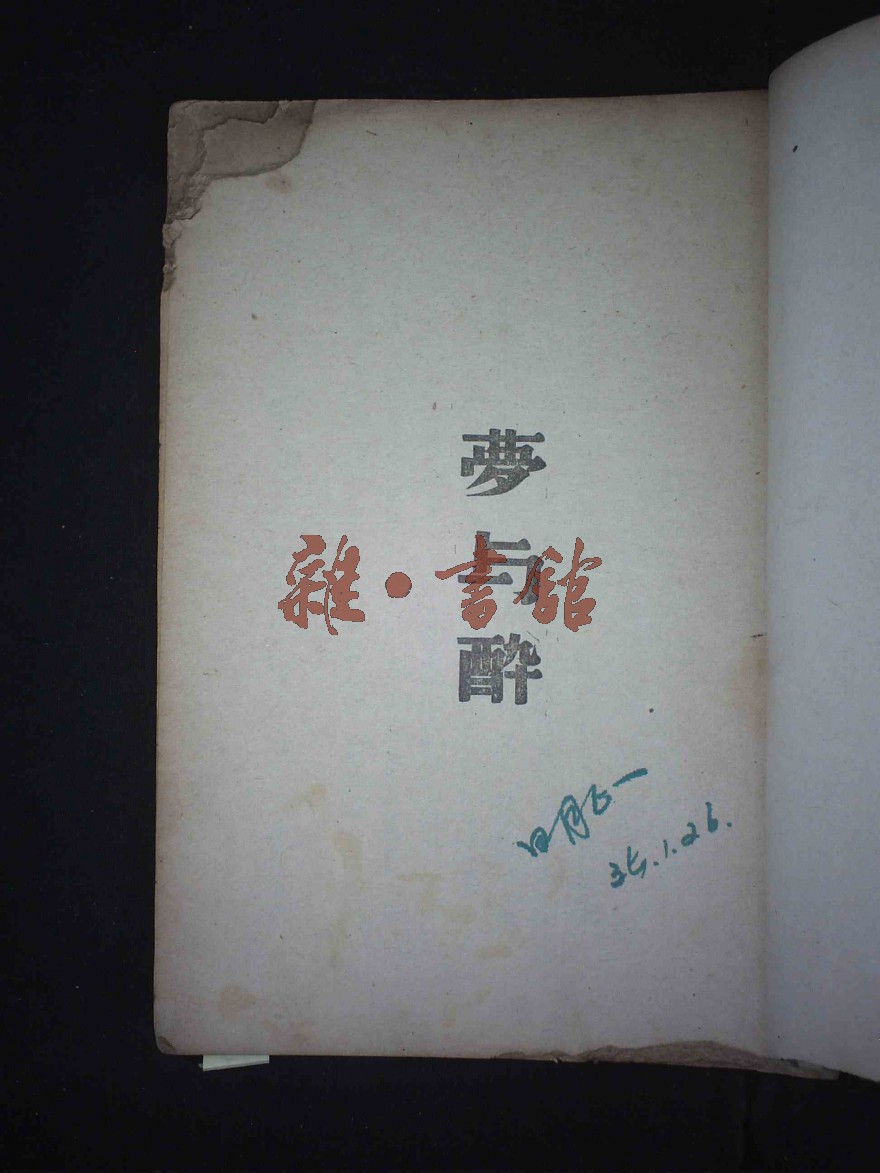 夢与醉
雜·書館
35.1.26.